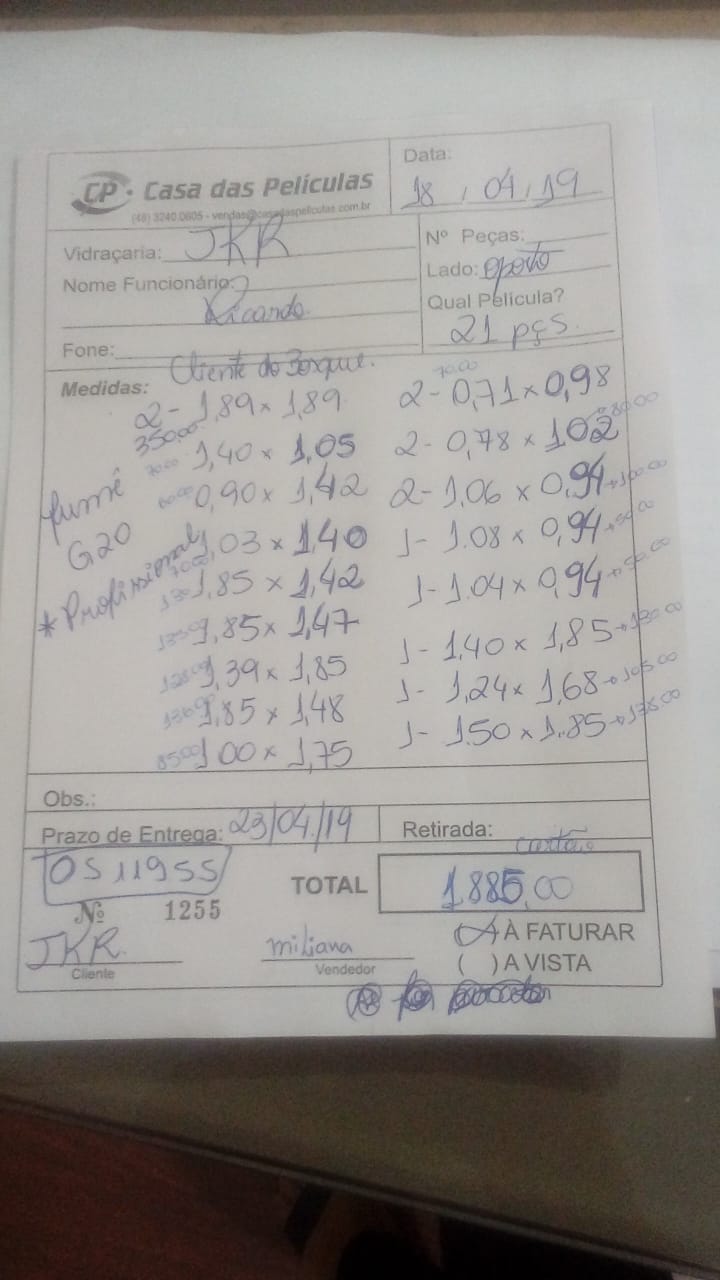 CP · Casa das Películas
(48) 3240.0605 - vendas@casadaspeliculas.com.br
Data:
18 / 04 / 19
Vidraçaria: JKR
Nome Funcionário:
Ricardo
Fone:
Nº Peças:
Lado: oposto
Qual Película?
21 pçs.
Medidas: Cliente do Bosque.
2 - 1,89 x 1,89
350,00
70,00 1,40 x 1,05
0,90 x 1,42
1,03 x 1,40
70,00
1,85 x 1,42
1,85 x 1,47
1,39 x 1,85
1,85 x 1,48
85,00 1,00 x 1,75
fumê
G20
* Profissional
70,00
2 - 0,71 x 0,98
2 - 0,78 x 1,02 80,00
2 - 1,06 x 0,94 → 100,00
1 - 1.08 x 0,94 → 50,00
1 - 1.04 x 0,94 → 50,00
1 - 1,40 x 1,85 → 130,00
1 - 1,24 x 1,68 → 105,00
1 - 1.50 x 1.85 → 138,00
Obs.:
Prazo de Entrega: 23/04/19
Retirada:
cartão
OS 11955
TOTAL 1.885,00
Nº 1255
JKR
Cliente
miliana
Vendedor
(X) À FATURAR
( ) A VISTA